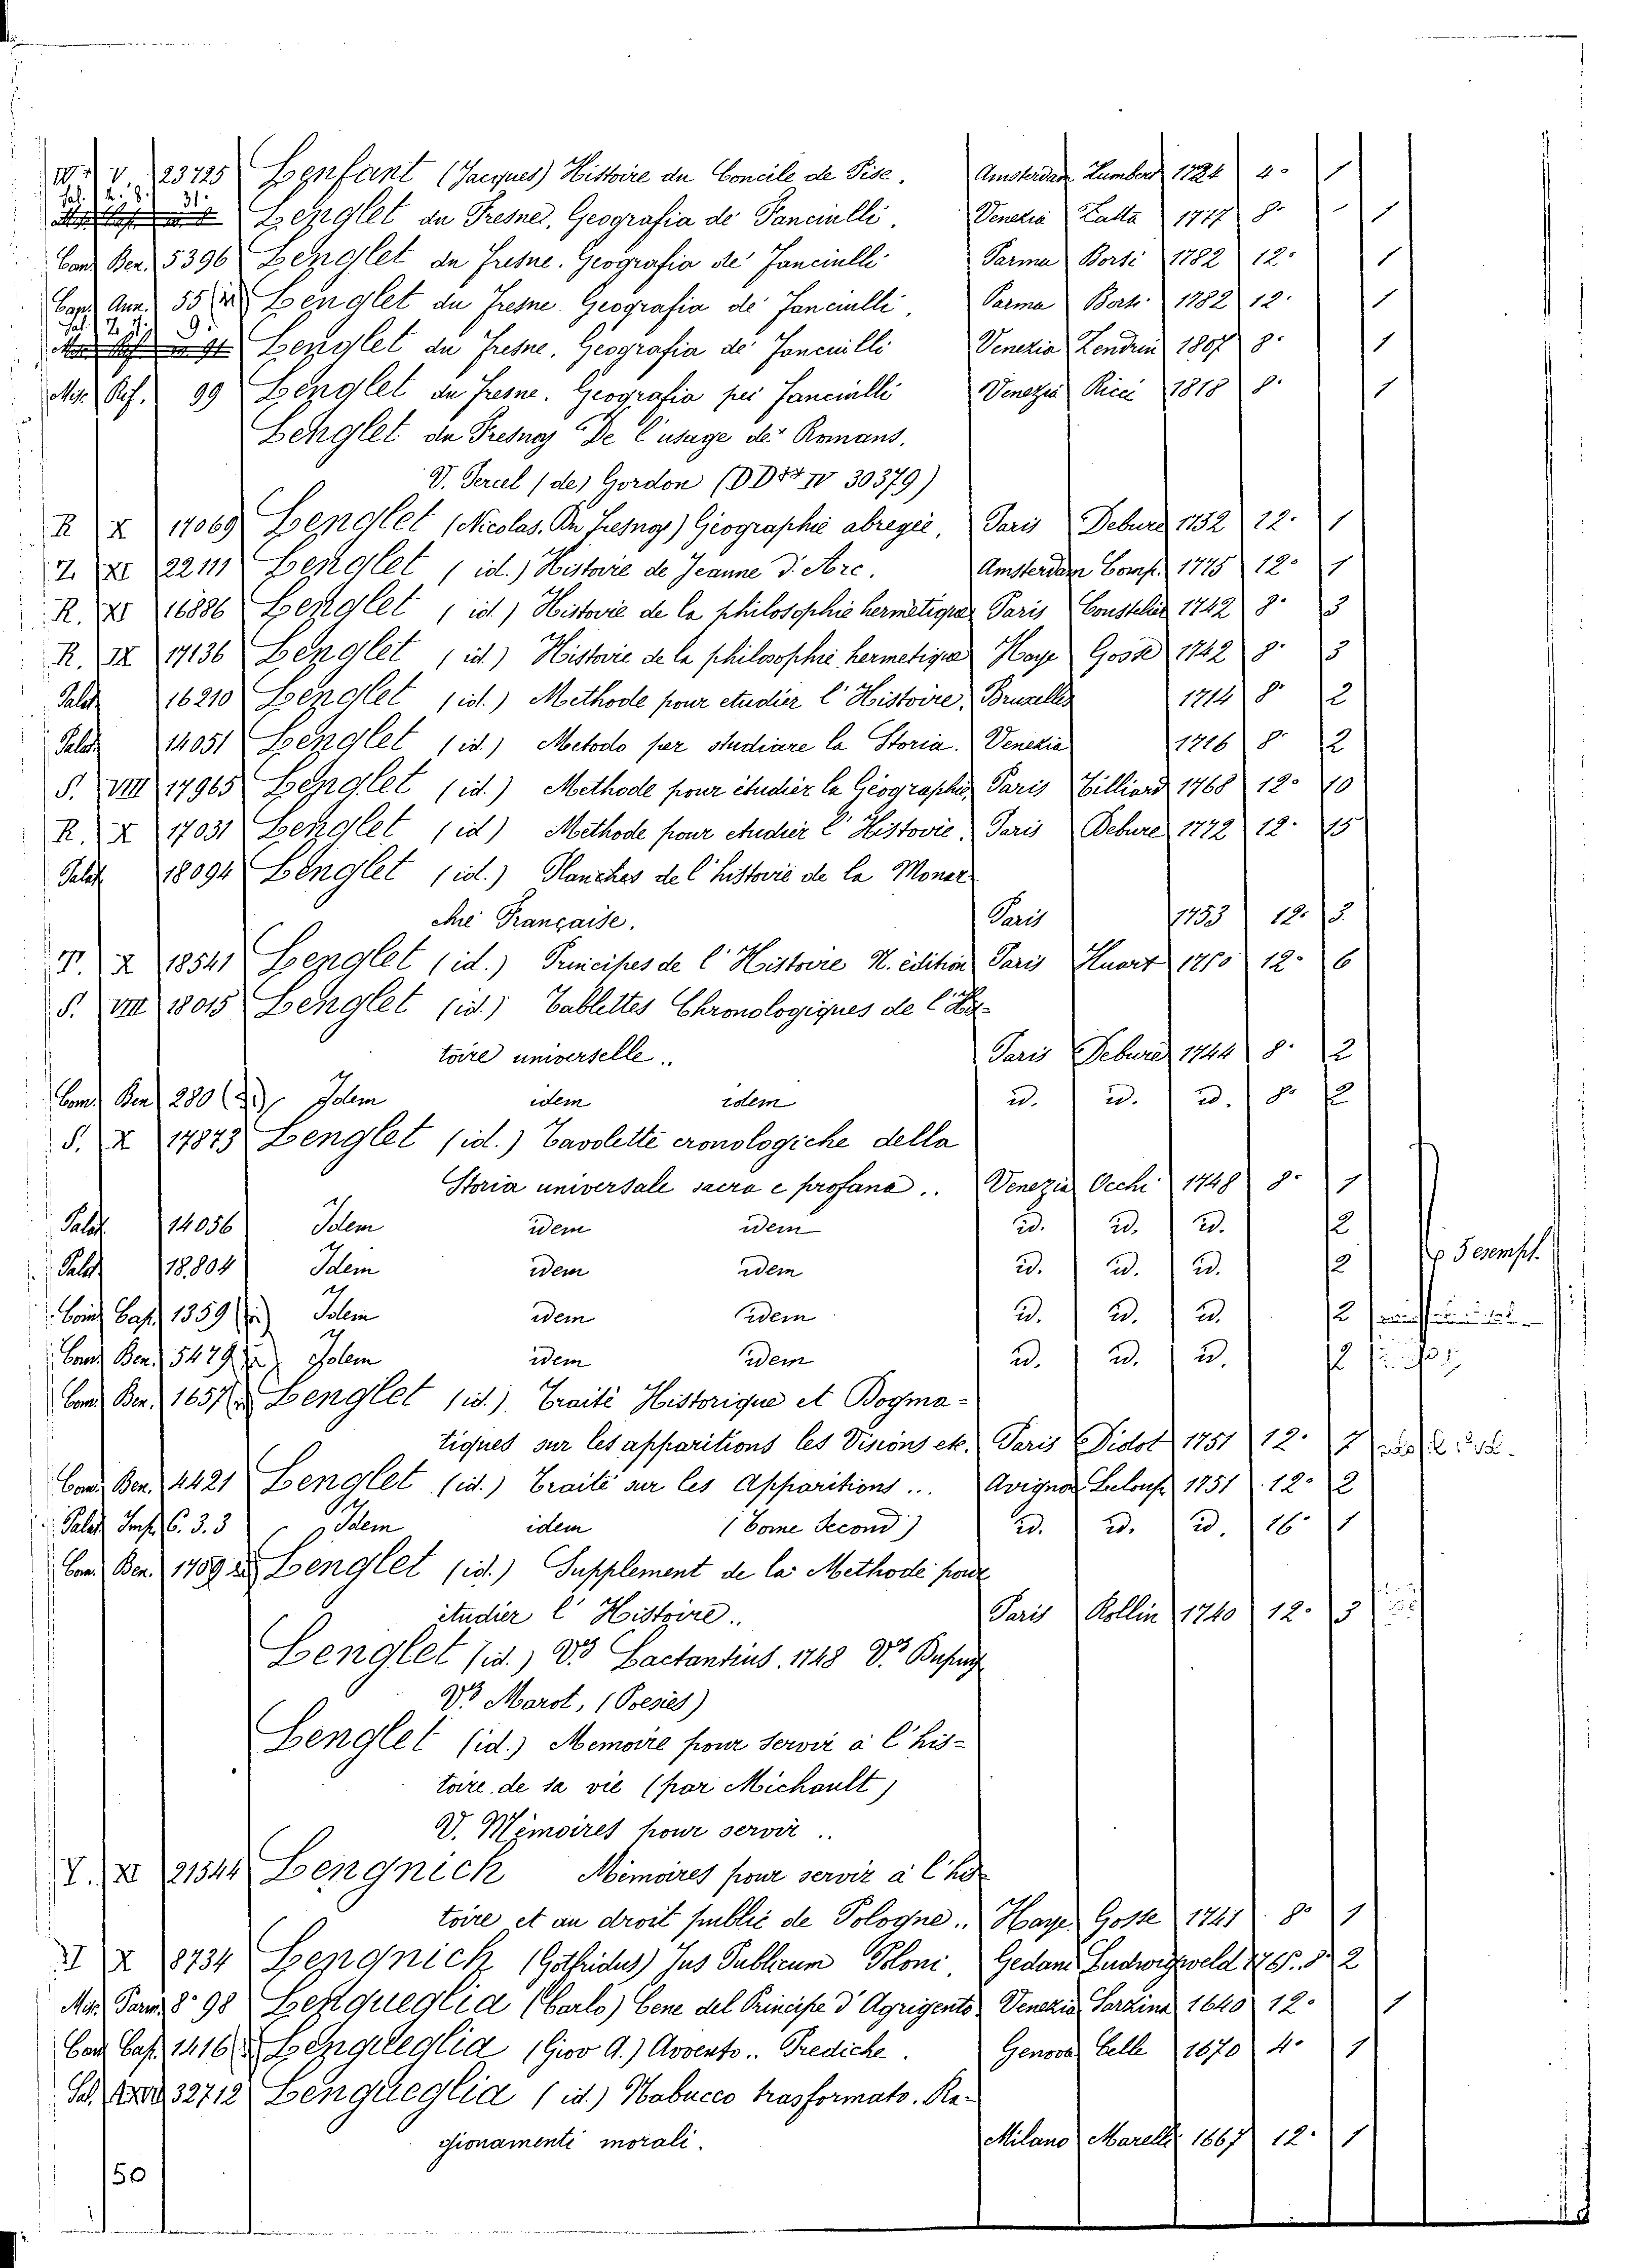 V 23725 Lenfant (Jacques) Histoire du Concile de Pise. Amsterdam Humbert 1724 4° 1
31. Lenglet du Fresnes, Geografia de' Fanciulli. Venezia Zatta 1777 8° 1
Con. Ben. 5396 Lenglet du Fresne. Geografia de' Fanciulli Parma Borsi 1782 12° 1
Cap. Ann. 55 Lenglet du Fresne. Geografia de' Fanciulli, Parma Bors. 1782 12° 1
9. Lenglet du Fresne. Geografia de' Fanciulli Venezia Zendrin 1807 8° 1
Min. Rif. 99 Lenglet du Fresne. Geografia pei Fanciulli Venezia Ricci 1818 8° 1
Lenglet du Fresnoy De l'usage de' Romans.
V. Percel (de) Gordon (DD IV 30379)
R X 17069 Lenglet (Nicolas. Du Fresnoy) Géographie abregée, Paris Debure 1752 12° 1
Z. XI 22111 Lenglet (id.) Histoire de Jeanne d'Arc. Amsterdam Comp. 1775 12° 1
R. XI 16886 Lenglet (id.) Histoire de la philosophie hermetique Paris Constelier 1742 8° 3
R. IX 17136 Lenglet (id.) Histoire de la philosophie hermetique Haye Gosse 1742 8° 3
Palat. 16210 Lenglet (id.) Methode pour etudier l'Histoire, Bruxelles 1714 8° 2
Palat. 14051 Lenglet (id.) Metodo per studiare la Storia. Venezia 1716 8° 2
S. VIII 17965 Lenglet (id.) Methode pour étudier la Géographie, Paris Tilliard 1768 12° 10
R. X 17031 Lenglet (id) Méthode pour etudier l'Histoire, Paris Debure 1772 12° 15
Palat. 18094 Lenglet (id.) Planches de l'histoire de la Monar
chie Française. Paris 1753 12° 3
T. X 18541 Lenglet (id.) Principes de l'Histoire N. édition Paris Huart 12° 6
S. VIII 18015 Lenglet (id.) Tablettes Chronologiques de l'His-
toire universelle.. Paris Debure 1744 8° 2
Com. Ben. 280 Idem idem idem id. id. id. 8° 2
S. X 17873 Lenglet (id.) Tavolette cronologiche della
Storia universale sacra e profana.. Venezia Occhi 1748 8° 1
Palat. 14056 Idem idem idem id. id. id. 2
Palat. 18.804 Idem idem idem id. id. id. 2
Com. Cap. 1359 Idem idem idem id. id. id. 2
Com. Ben. 5479 Idem idem idem id. id. id. 2
Com. Ben. 1657 Lenglet (id.). Traité Historique et Dogma-
tiques sur les apparitions les Visions etc. Paris Didot 1751 12° 2
Com. Ben. 4421 Lenglet (id.) Traité sur les Apparitions... Avignon Leloup 1751 12° 2
Palat. Imp. C. 3. 3 Idem idem (Tome Second) id. id. id. 16° 1
Com. Ben. 1789 Lenglet (id.) Supplement de la Methode pour
étudier l'Histoire.. Paris Rollin 1740 12° 3
Lenglet (id.) Vo Lactantius. 1748 Vo
Vo Marot, (Poesies)
Lenglet (id.) Memoire pour servir à l'his-
toire de sa vie (par Michault)
V. Mémoires pour servir..
XI 21544 Lengnich Mémoires pour servir à l'his
toire et au droit public de Pologne.. Haye Gosse 1741 8° 1
X 8734 Lengnich (Gotfridus) Jus Publicum Poloni. Gedani Ludwigweld 8° 2
Min. Parm. 8° 98 Lengueglia (Carlo) Cene del Principe d'Agrigento Venezia Sarzina 1640 12° 1
Com. Cap. 1416 Lengueglia (Giov A.) Avvento.. Prediche. Genova Celle 1670 4° 1
32712 Lengueglia (id.) Nabucco trasformato. Ra-
gionamenti morali. Milano Marelli 1667 12° 1
150